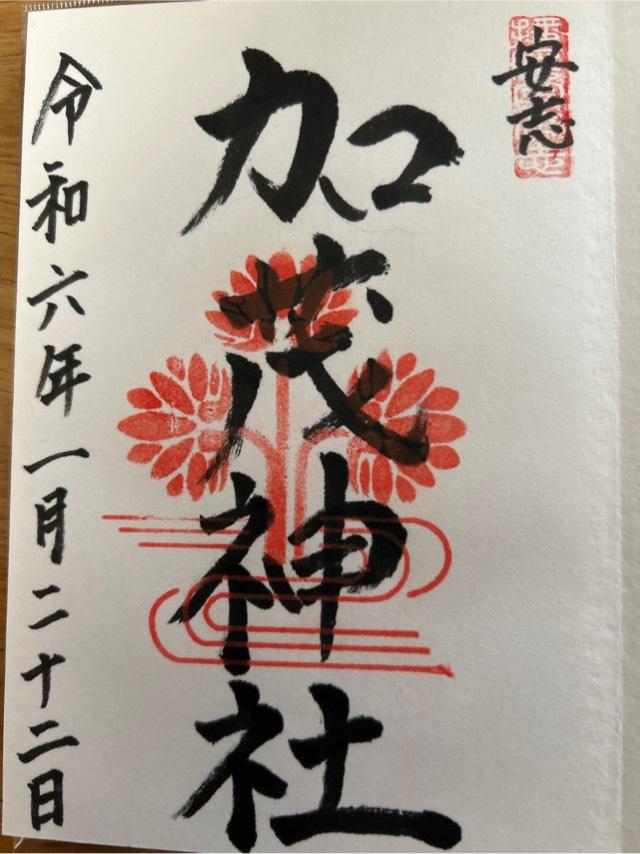 安志
加茂神社
令和六年一月二十二日